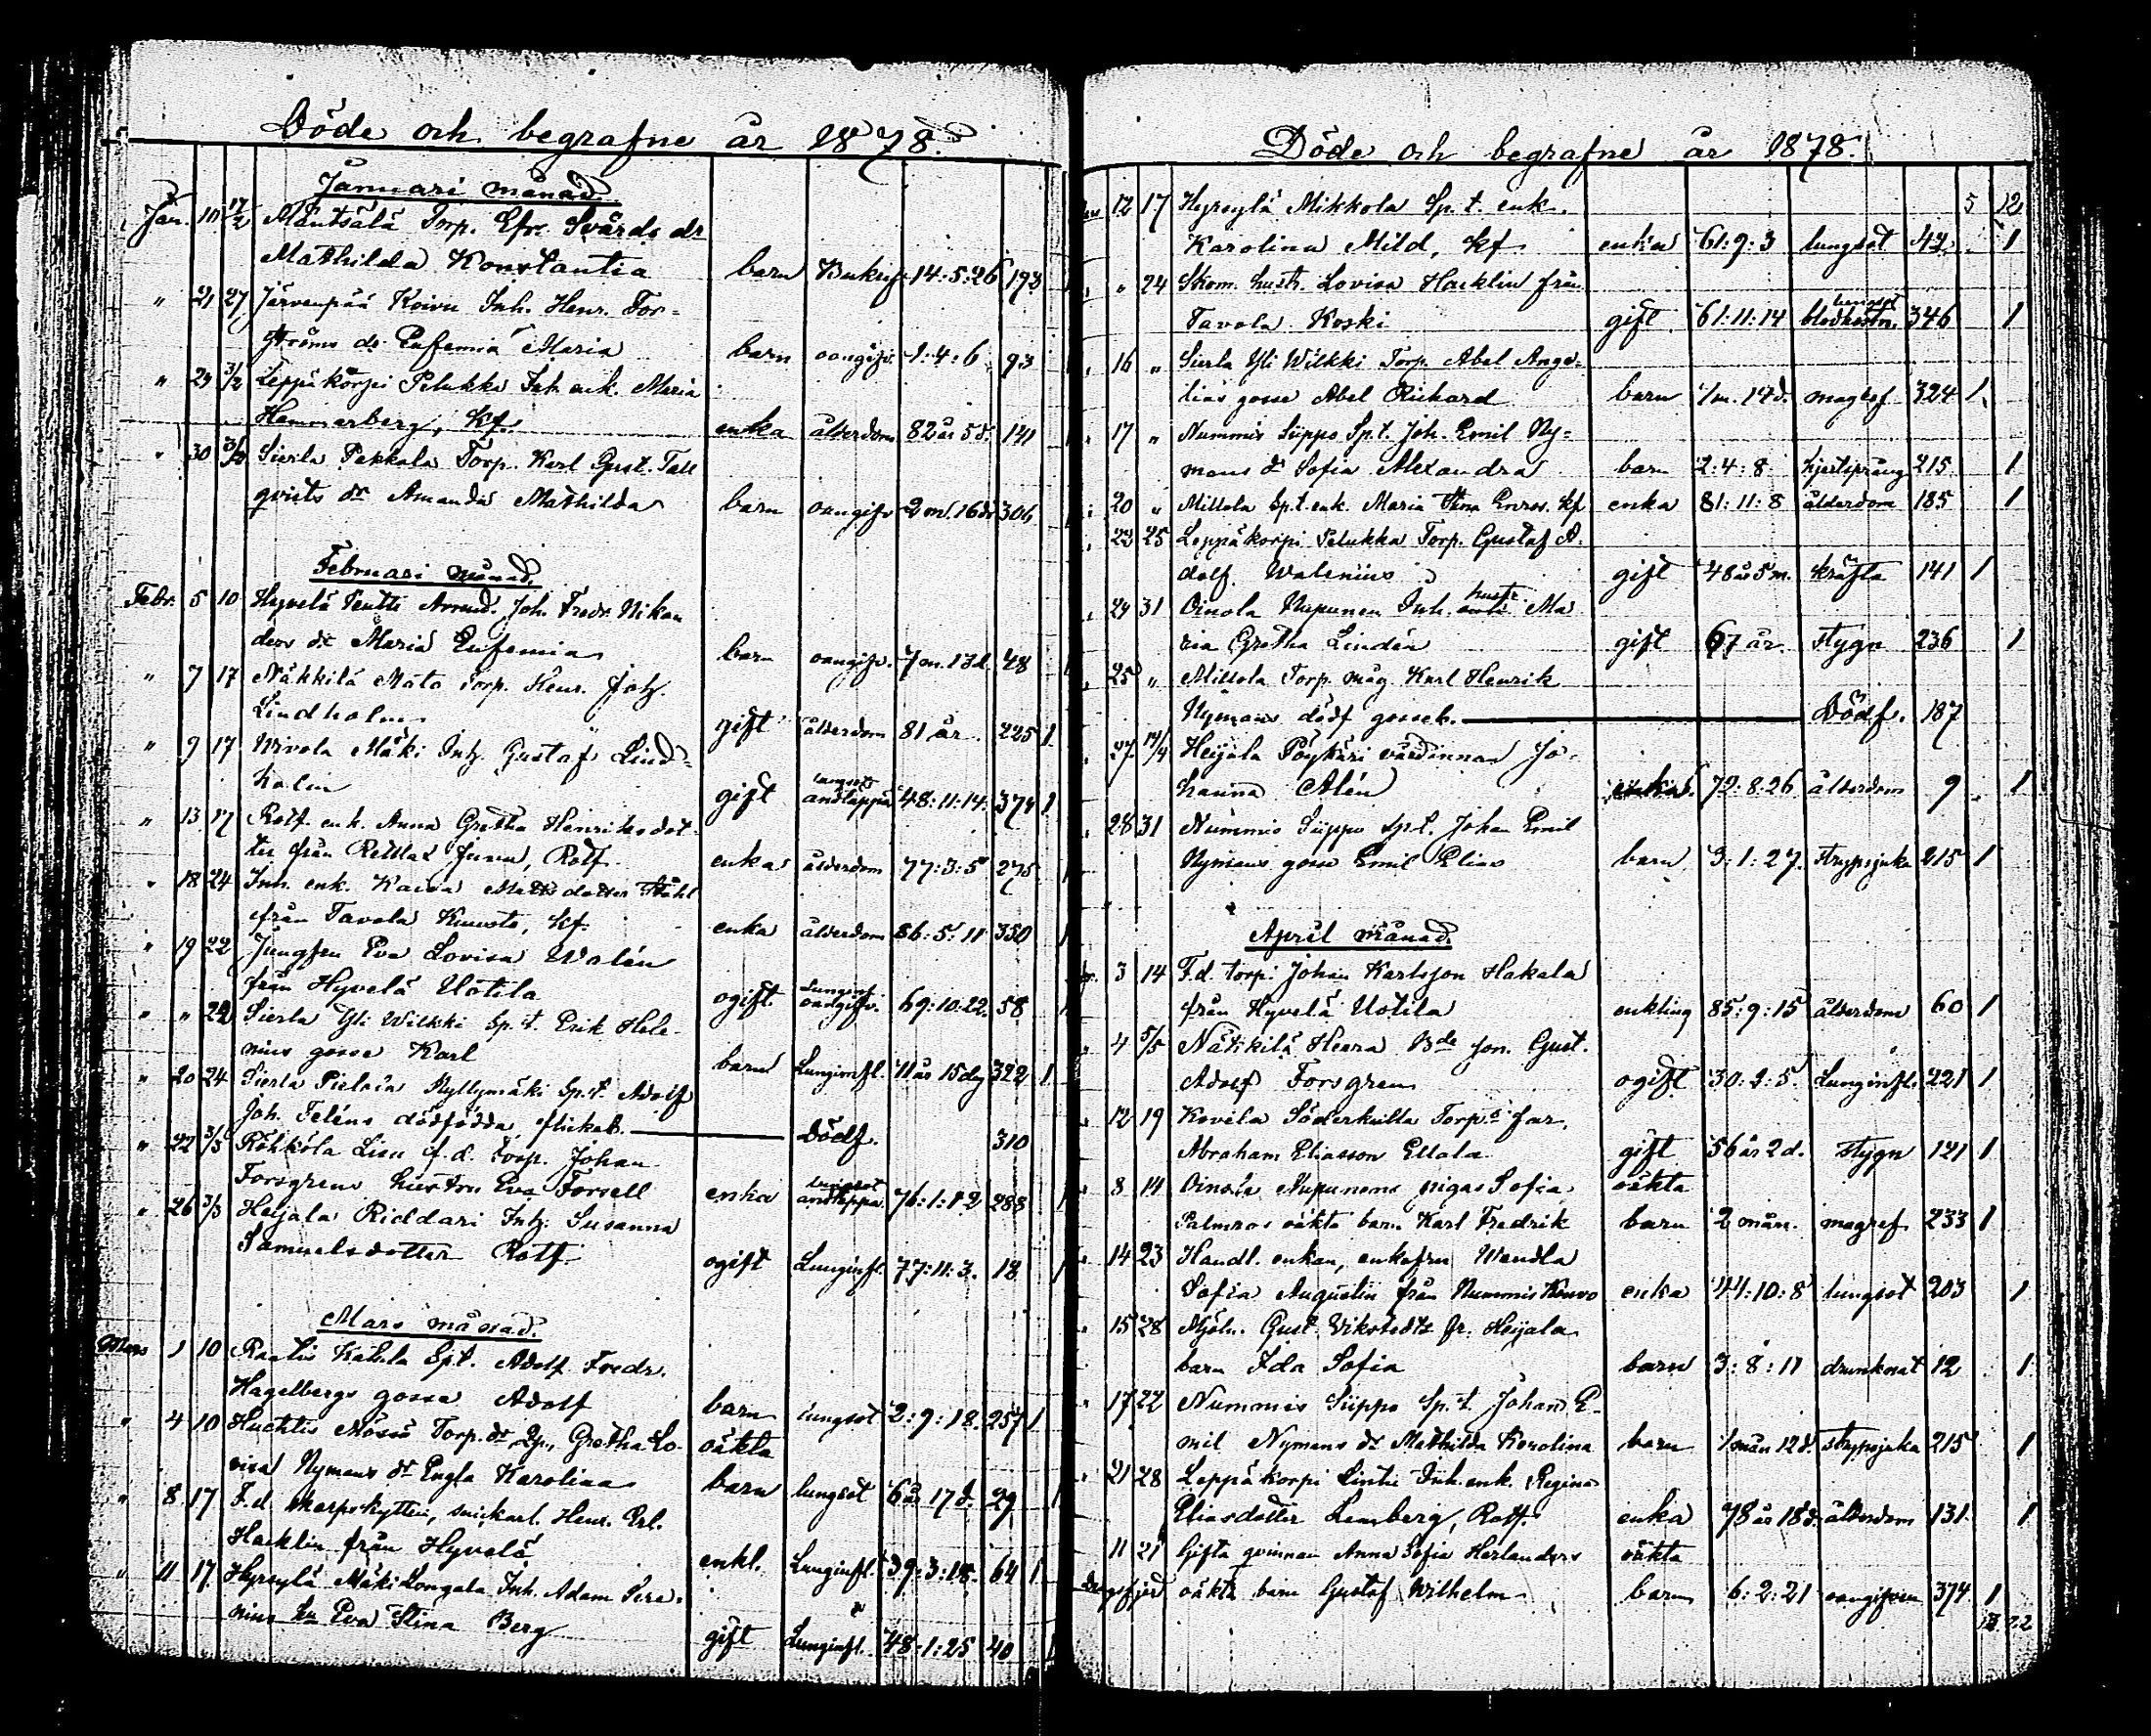 Döde och begrafne år 1878.
Januari månad.
Jan. 10 17/2 Mäntsälä Torp. Efr. Svärds dr
Mathilda Konstantia barn Bukref 14:5:26 193
" 21 27 Järvenpää Koivu Inh. Henr. For-
ströms dr Eufemia Maria barn oangifv. 1:4:6 93
" 29 3/2 Leppäkorpi Pelukka Inh. enk. Maria
Hemmerberg, Kf. enka ålderdom 82 år 5 d. 141
" 30 3/2 Sierla Pakkala Torp. Karl Gust. Tall
qvists dr Amanda Mathilda barn oangifv 2 m. 16 d. 306
Februari månad.
Febr. 5 10 Hyvelä Pentti Arrend. Joh. Fredr. Nikan
ders dr Maria Eufemia barn oangifv. 7 m. 13 d. 48
" 7 17 Näkkilä Mato Torp. Henr. Joh.
Lindholm gift ålderdom 81 år 225 1
" 9 17 Wivola Mäki Inh. Gustaf Lind-
holm gift lungsot andtäppa 48:11:14. 374 1
" 13 17 Rotf. enk. Anna Gretha Henriksdot-
ter från Juvu, Rotf. enka ålderdom 77:3:5 275
" 18 24 Inh. enk. Kaisa Mattsdotter Ståhl
från Tavola Knuuts, Kf. enka ålderdom 86:5:11 350 1
" 19 22 Jungfru Eva Lovisa Walén
från Hyvelä Uotila ogift Lunginf. oangifv. 69:10:22. 58
" " 22 Sierla Yli Wilkki Sp.t. Erik Hele-
nius gosse Karl barn Lunginfl. 11 år 15 dg 322 1
" 20 24 Sierla Pielaia Myllymäki Sp.t. Adolf
Joh. Feléns dödfödda flickeb. Dödf. 310
" 22 3/3 Röhköla Lisu f.d. torp. Johan
Forsgrens hustru Eva Forsell enka lungsot andtäppa 76:1:12 288
" 26 3/3 Heijala Riddari Inh. Susanna
Samuelsdotter Rotf. ogift Lunginfl. 77:11:3. 18 1
Mars månad.
Mars 1 10 Raatis Katila Spt. Adolf Fredr.
Hagelbergs gosse Adolf barn lungsot 2:9:18. 257 1
" 4 10 Huchtis Mössö Torp. dr Qp., Gretha Lo- oäkta
visa Nymans dr Engla Karolina barn lungsot 6 år 17 d. 29
" 8 17 F.d. skarpskytten, snickarl. Henr. Erl.
Hacklin från Hyvelä enkl. Lunginfl. 39:3:18. 64 1
" 11 17 Hyrsylä Mäki Longala Inh. Adam Sera-
nius hu Eva Stina Berg gift Lunginfl. 48:1:25 40 1
Döde och begrafne år 1878.
12 17 Hyrsylä Mikkola Sp.t. enk. 5 12
Karolina Mild, Kf enka 61:9:3 lungsot 42 1
" 24 Skom. hustr. Lovisa Hacklin från
Tavola Koski gift 61:11:14 lungsot 346 1
16 " Sierla Yli Wilkki Torp. Abel Ange-
lias gosse Abel Richard barn 1 m. 14 d. magref 324 1
17 " Nummis Siippo Sp.t. Joh. Emil Ny-
mans dr Sofia Alexandra barn 2:4:8 hjertsprång 215 1
20 " Millola Sp.t. enk. Maria Stina Enros. Kf enka 81:11:8 ålderdom 185 1
23 25 Leppäkorpi Pelukka Torp. Gustaf A-
dolf Walenius gift 48 år 5 m. kräfta 141 1
24 31 Oinola Nupunen Inh. hustr Ma
ria Gretha Lindén gift 67 år Stygn 236 1
25 " Millola Torp. måg Karl Henrik
Nymans dödf gosseb. Dödf. 187
27 14/4 Heijala Pöykäri värdinnan Jo-
hanna Alén enka 72:8:26 ålderdom 9 1
28 31 Nummis Siippo Sp.t. Johan Emil
Nymans gosse Emil Elias barn 3:1:27. Strypsjuka 215 1
April månad.
3 14 F.d. torp. Johan Karlsson Hakala
från Hyvelä Uotila enkling 85:9:15 ålderdom 60 1
4 5/5 Näkkilä Heera Bde son Gust.
Adolf Forsgren ogift 30:2:5. Lunginfl. 221 1
12 19 Kovela Söderkulla Torps far,
Abraham Eliasson Ellala gift 56 år 2 d. Stygn 121 1
8 14 Oinola Nupunens pigas Sofia oäkta
Palmros oäkta barn Karl Fredrik barn 2 mån. magref. 233 1
14 23 Handl. enkan, enkefru Wendla
Sofia Augustin från Nummis Knuvo enka 44:10:8 lungsot 203 1
15 28 Mjöln. Gust. Vikstedts fr. Heijala
barn Ida Sofia barn 3:8:11 drunknat 12 1
17 22 Nummis Siippo Sp.t. Johan E-
mil Nymans dr Mathilda Karolina barn 1 mån 12 d. strypsjuka 215 1
21 28 Leppäkorpi Lintu Inh. enk. Regina
Eliasdotter Lemberg, Rotf. enka 78 år 18 d. ålderdom 131. 1
11 21 Gifta qvinnan Anna Sofia Herlanders oäkta
oäkta barn Gustaf Wilhelm barn 6:2:21 oangifven 374 1
22